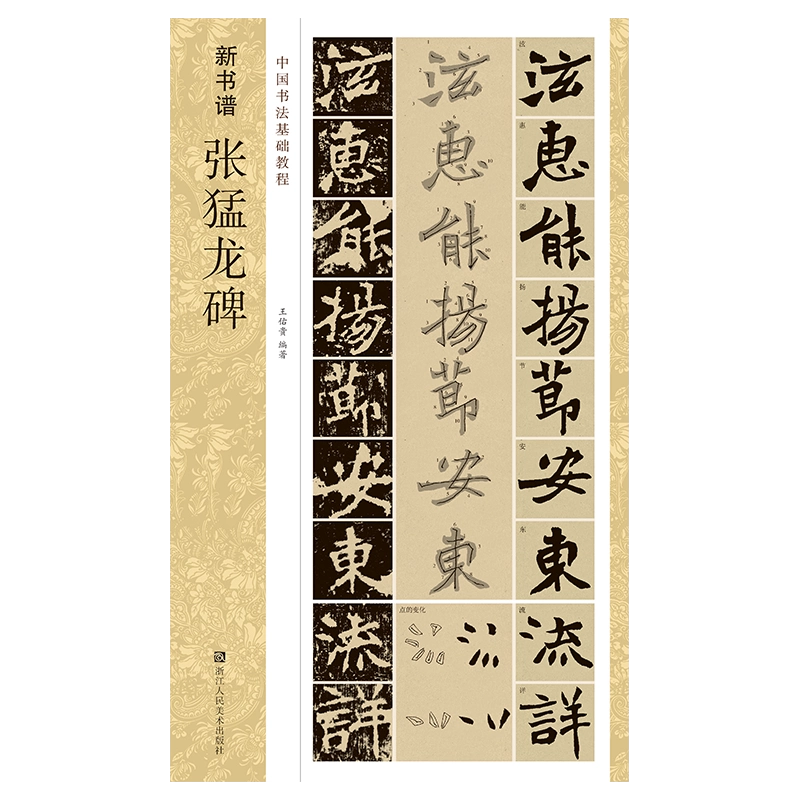 新书谱
张猛龙碑
浙江人民美术出版社
中国书法基础教程
王佑贵 编著
泫 泫 泫 泫
惠 惠 惠 惠
能 能 能 能
揚 揚 扬 揚
莭 莭 节 莭
安 安 安 安
東 東 东 東
流 点的变化 流 流
詳 詳